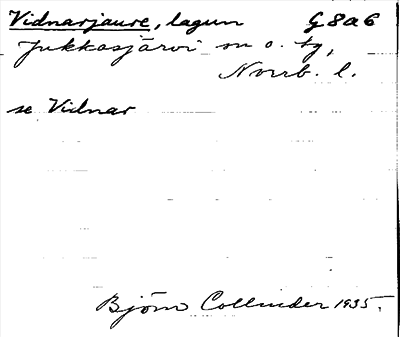 Vidnarjaure, lagun G8a6
Jukkasjärvi sn o. tg,
Norrb. l.
se Vidnar
Björn Collinder 1935.